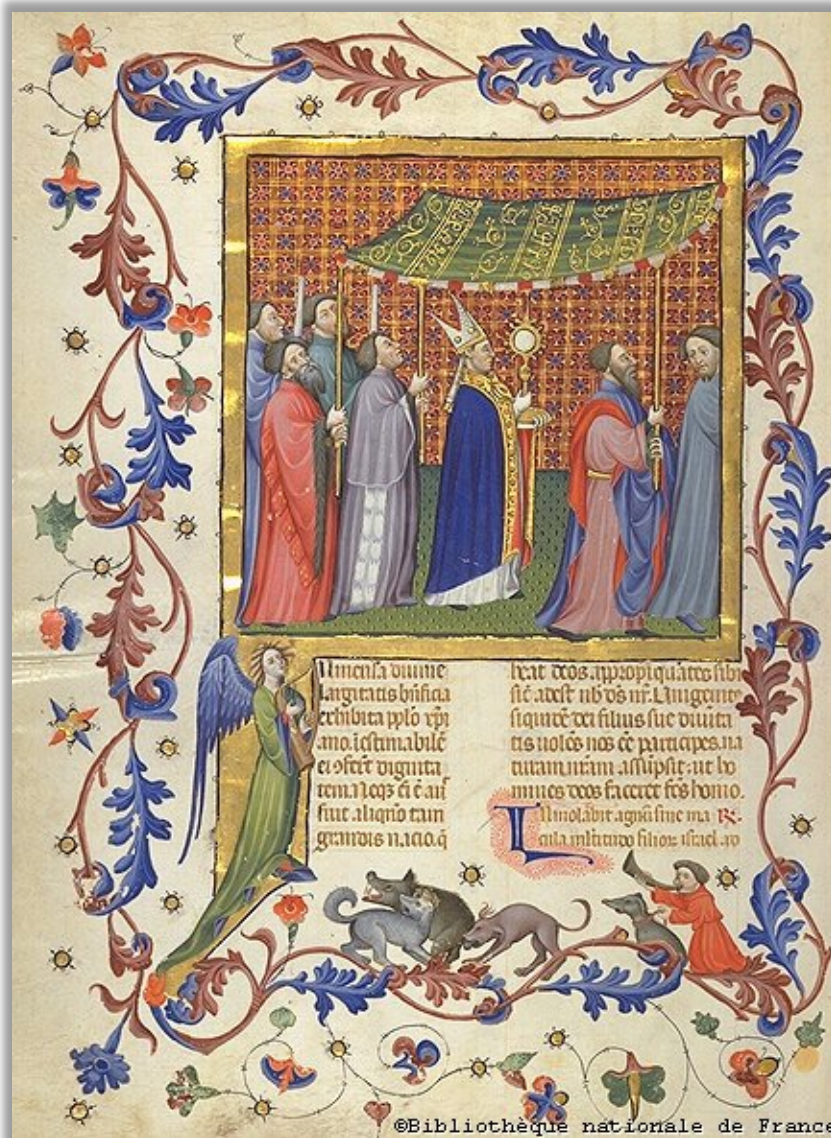 Mmensa diuine
largitatis bñficia
exhibita pplo xpi
ano. iestimabilē
ei ɔferūt dignita
tem. Neqz ei ē aut
fuit aliqño tam
grandis nacio. q̄
beat deos appropiquātes sibi
sic adest nob ds nr. Unigenitus
siquidē dei filius sue diuinita
tis uolēs nos ēē participes. na
turam nrām assūpsit: ut ho
mines deos faceret fcs homo.
Immolabit agnū sine ma R.
cula multitudo filior israel. ro
©Bibliothèque nationale de France